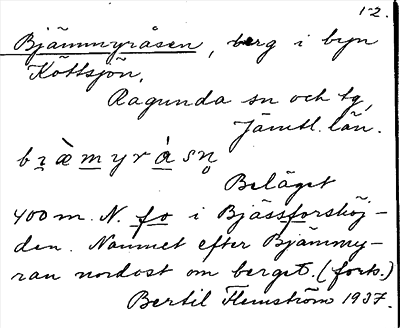 1-2.
Bjämmyråsen, berg i byn
Köttsjön,
Ragunda sn och tg,
Jämtl. län.
bi̱æ̀m̱yrá̱sn̥
Beläget
400 m. N. fo i Bjässforshöj-
den. Namnet efter Bjämmy-
ran nordost om berget. (forts.)
Bertil Flemström 1937.